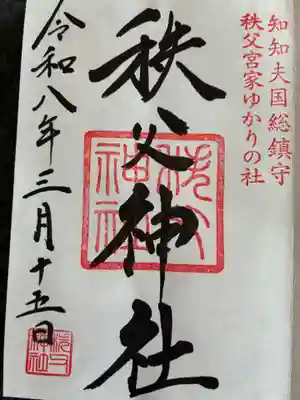 知知夫国総鎮守
秩父宮家ゆかりの社
秩父神社
秩父
神社
令和八年三月十五日
秩父
神社